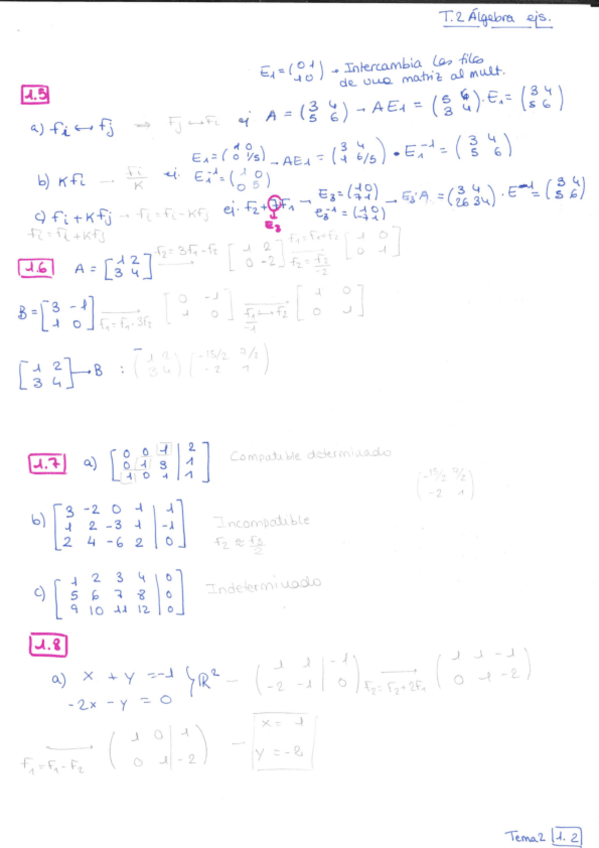 T.2 Álgebra ejs.
E₁=(0 1 / 1 0) → Intercambia las filas
de una matriz al mult.
1.5
a) fi ↔ fj → fj ↔ fi ej A = (3 4 / 5 6) → A E₁ = (5 6 / 3 4) · E₁ = (3 4 / 5 6)
b) Kfi → fi/K ej. E₁=(1 0 / 0 1/5) → AE₁ = (3 4 / 1 6/5) · E₁⁻¹ = (3 4 / 5 6)
E₁⁻¹=(1 0 / 0 5)
c) fi + Kfj → fi=fi-Kfj ej. f₂+7f₁ → E₃=(1 0 / 7 1) → E₃·A = (3 4 / 26 34) · E⁻¹ = (3 4 / 5 6)
fi=fi+Kfj
E₃
1.6 A = [1 2 / 3 4] f₂=3f₁-f₂ [1 2 / 0 -2] f₁=f₁+f₂ f₂=f₂/-2 [1 0 / 0 1]
B = [3 -1 / 1 0] f₁=f₁-3f₂ [0 -1 / 1 0] f₁↔f₂ -1 [1 0 / 0 1]
[1 2 / 3 4] → B : (1 2 / 3 4) (-15/2 7/2 / -2 1)
1.7 a) [0 0 1 | 2 / 0 1 3 | 1 / 1 0 1 | 1] Compatible determinado
(-15/2 7/2 / -2 1)
b) [3 -2 0 1 | 1 / 1 2 -3 1 | -1 / 2 4 -6 2 | 0] Incompatible
c) [1 2 3 4 | 0 / 5 6 7 8 | 0 / 9 10 11 12 | 0] Indeterminado
1.8
a) x + y = -1 } ℝ² → (1 1 | -1 / -2 -1 | 0) f₂=f₂+2f₁ (1 1 -1 / 0 1 -2)
-2x - y = 0
f₁=f₁-f₂ (1 0 | 1 / 0 1 | -2) → x = 1
y = -2
Tema 2 1. 2